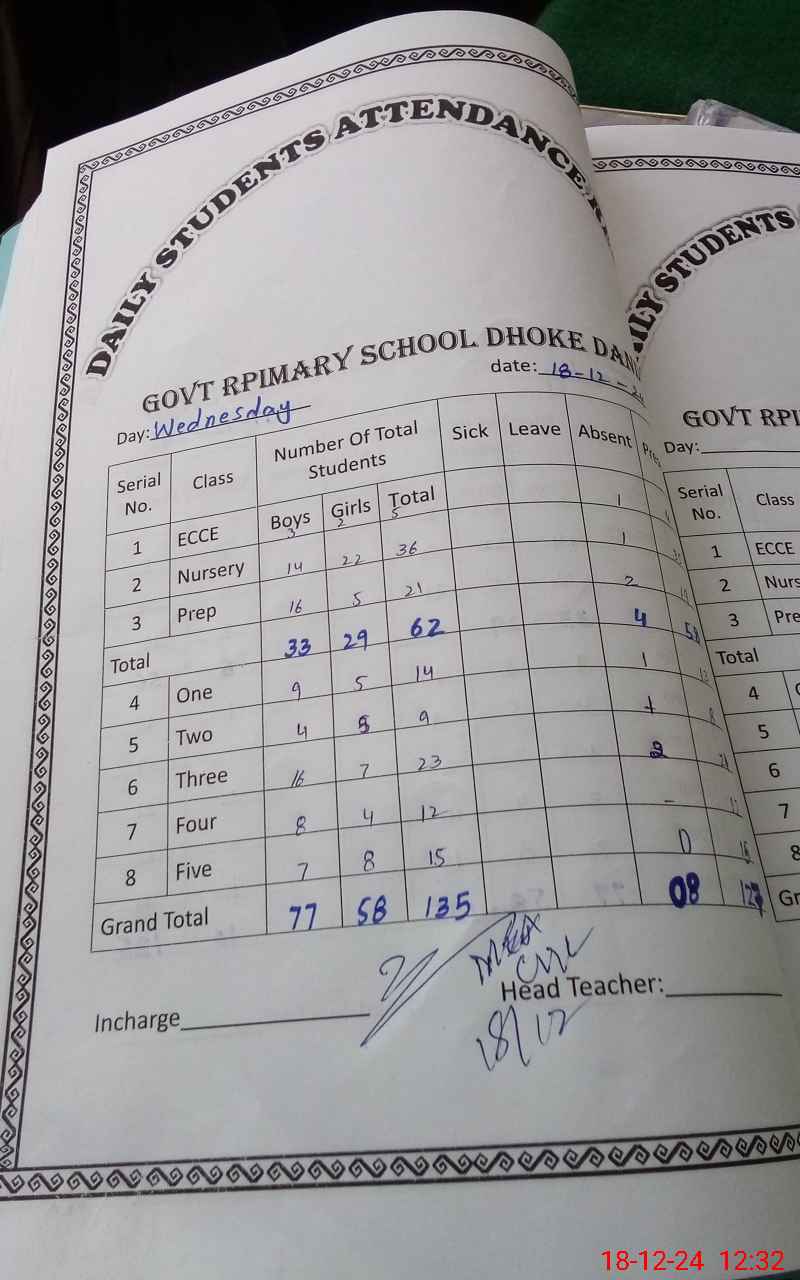 DAILY STUDENTS ATTENDANCE
GOVT RPIMARY SCHOOL DHOKE
date: 18-12-24
Day: Wednesday
Serial No. Class Number Of Total Students Sick Leave Absent
Boys Girls Total
1 ECCE 3 2 5 1
2 Nursery 14 22 36 1
3 Prep 16 5 21 2
Total 33 29 62 4 58
4 One 9 5 14 1 13
5 Two 4 5 9 1 8
6 Three 16 7 23 2
7 Four 8 4 12 -
8 Five 7 8 15 0 15
Grand Total 77 58 135 08 127
Incharge
Head Teacher:
18/12
DAILY STUDENTS
GOVT
Day:
Serial No. Class
1 ECCE
2
3
Total
4
5
6
7
8
18-12-24 12:32